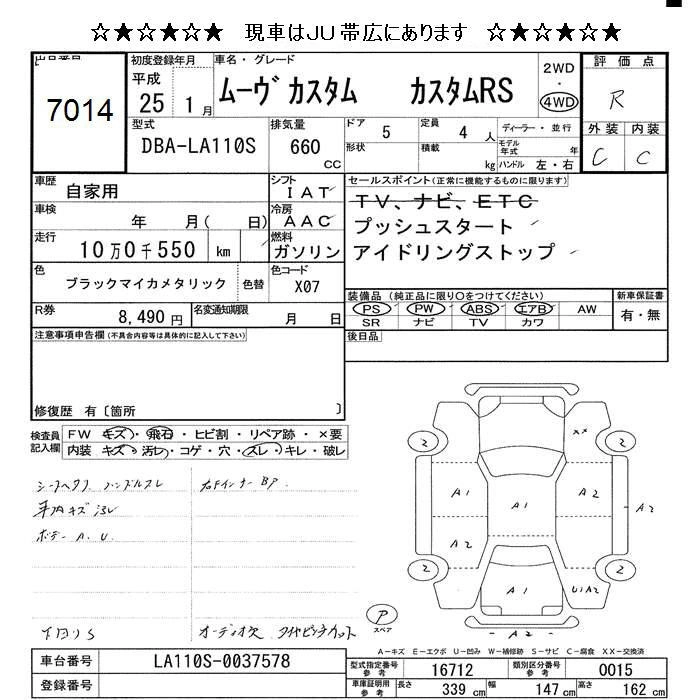 ☆★☆★☆★ 現車はJU帯広にあります ☆★☆★☆★
出品番号
7014
初度登録年月
平成
25 1月
車名・グレード
ムーヴ カスタム カスタムRS
2WD
・
4WD
評価点
R
型式
DBA-LA110S
排気量
660
CC
ドア 5
形状
定員 4 人
積載 kg
ディーラー・並行
モデル年式 年
ハンドル 左・右
外装 内装
C C
車歴 自家用
シフト IAT
車検 年 月( 日)
冷房 AAC
走行 10万0千550 km
燃料 ガソリン
セールスポイント(正常に機能するものに限ります)
TV、ナビ、ETC
プッシュスタート
アイドリングストップ
色 ブラックマイカメタリック
色替
色コード X07
R券 8,490 円
名変通知期限 月 日
装備品(純正品に限り〇をつけてください)
新車保証書
PS PW ABS エアB AW
SR ナビ TV カワ
有・無
注意事項申告欄(不具合内容等は具体的に記入して下さい)
後日品
修復歴 有〔箇所 〕
検査員記入欄
FW キズ・飛石・ヒビ割・リペア跡・×要
内装 キズ・汚レ・コゲ・穴・スレ・キレ・破レ
シートヘタリ ハンドルスレ
車内キズ 汚レ
ボデー A. U.
右Fインナー BP
下回りS
オーディオ欠 タイヤピッチカット
2
××
2
A1
A2
A1
A2
A2
A2
2
A1
U1A2
2
P
スペア
A2
A-キズ E-エクボ U-凹み W-補修跡 S-サビ C-腐食 XX-交換済
車台番号 LA110S-0037578
登録番号
型式指定番号参考 16712
類別区分番号参考 0015
車庫証明用参考 長さ 339 cm 幅 147 cm 高さ 162 cm